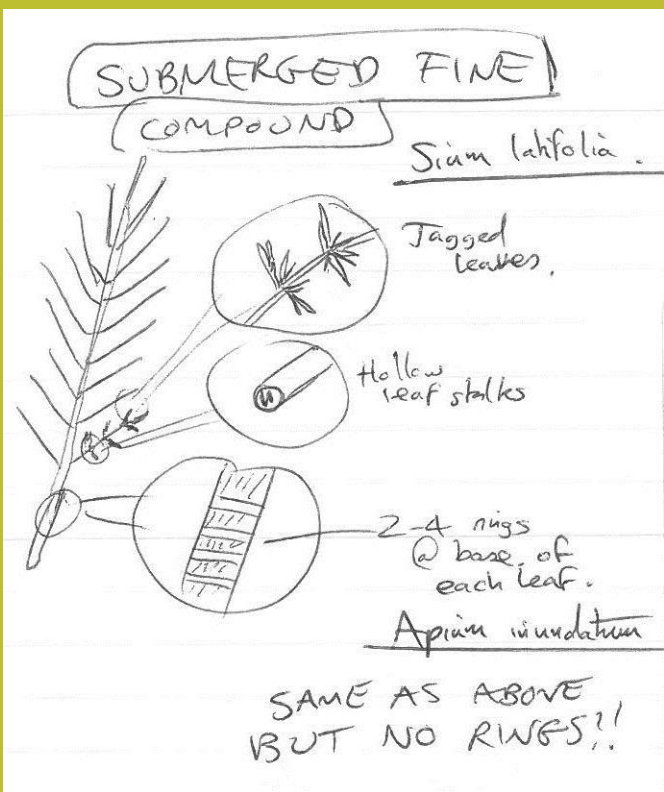 SUBMERGED FINE
COMPOUND
Sium latifolia.
Jagged
leaves.
Hollow
leaf stalks
2-4 rings
@ base of
each leaf.
Apium inundatum
SAME AS ABOVE
BUT NO RINGS?!